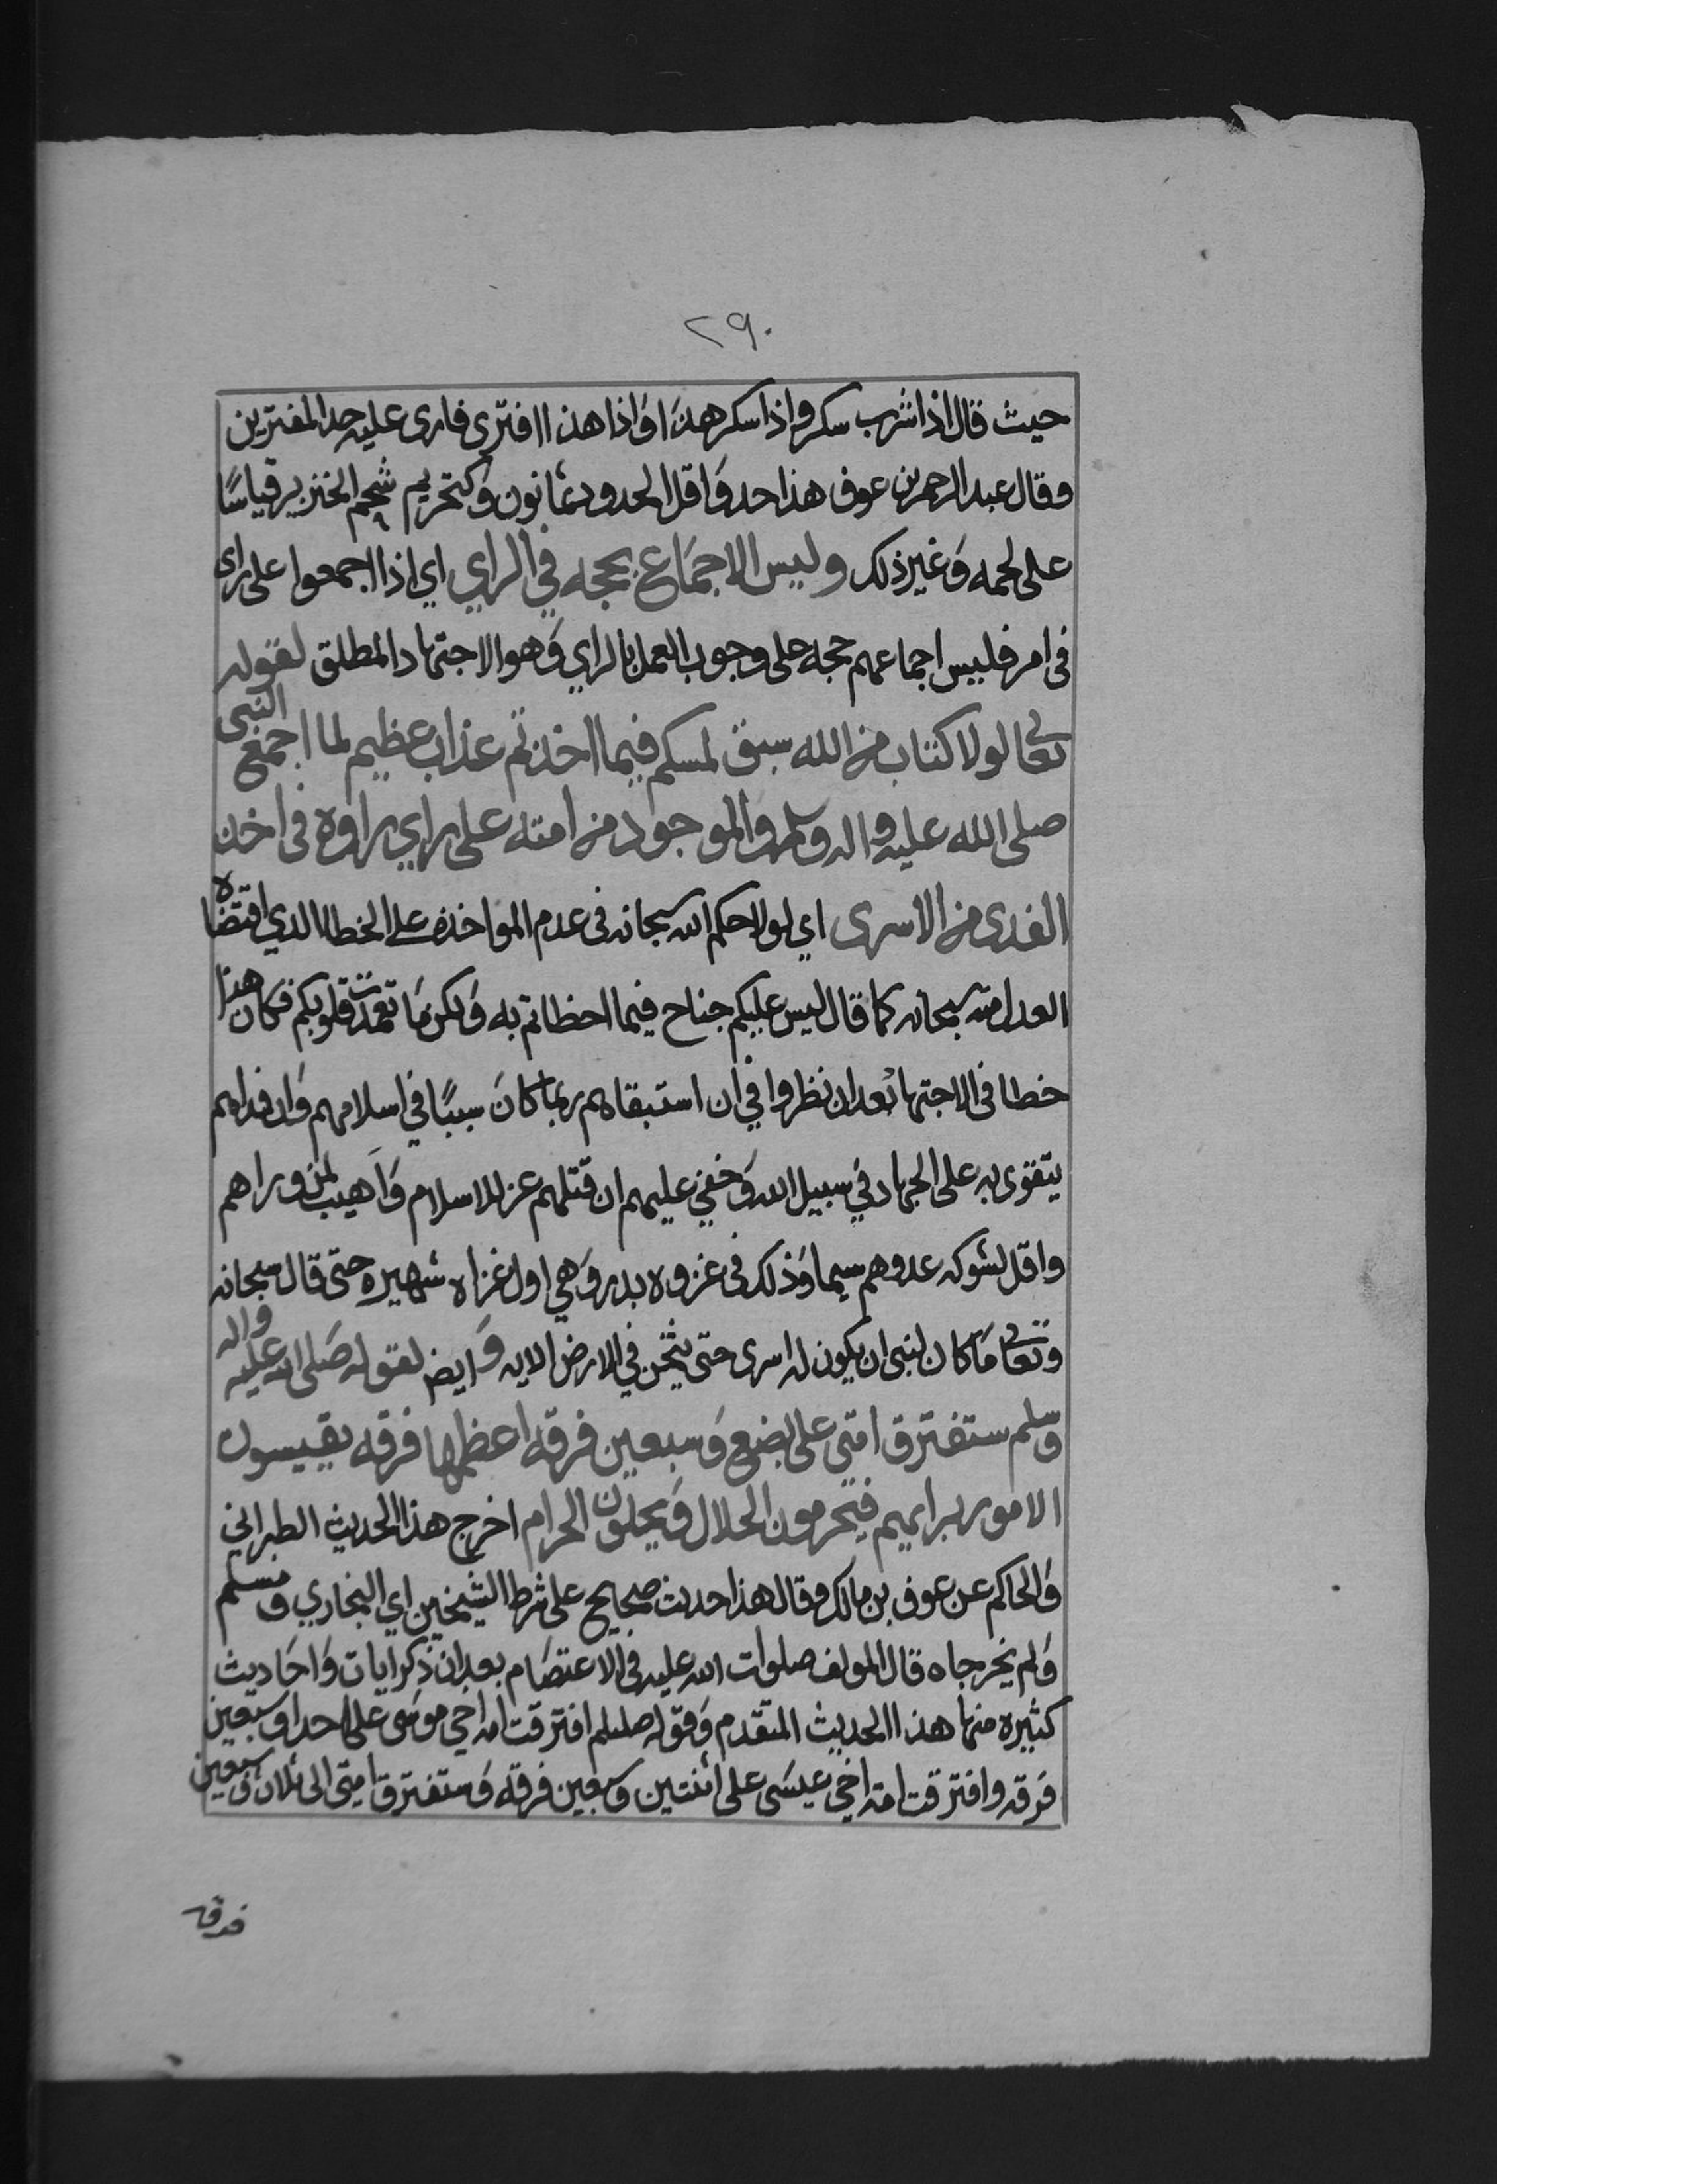 ٢٩٠
حيث قال اذا شرب سكر واذا سكر هذا واذا هذا افترى فارى عليه حد المفترين
وقال عبد الرحمن بن عوف هذا حد وَاقل الحدود ثمانون وَكتحريم شحم الخنزير قياسًا
على لحمه وَغير ذلك وليس الاجمَاع بحجه في الراي اي اذا اجمعوا على راى
فى امر فليس اجماعهم حجه على وجوب العمل بالراي وَهو الاجتهاد المطلق لقوله
تعالى لولا كتاب من الله سبق لمسكم فيما اخذتم عذاب عظيم لما اجمع النبى
صلى الله عليه واله وسلم والموجود من امته على راي راوه فى اخذ
الفدى من الاسرى اي لولا حكم الله سبحانه فى عدم المواخذه على الخطا الذي اقتضاه
العدل منه سبحانه كما قال ليس عليكم جناح فيما اخطاتم به وَلكن مَا تعمدت قلوبكم فكان هذا
خطا فى الاجتهاد بعد ان نظروا في ان استبقاهم ربما كانَ سببًا في اسلامهم وَان فداهم
يتقوى به على الجهاد في سبيل الله وَخفي عليهم ان قتلهم عز للاسلام وَاَهيب لمن وراهم
واقل لشوكه عدوهم سيما وَذلك فى غزوه بدر وَهي اول غزاه شهيره حتى قال سبحانه
وتعالى مَا كان لنبى ان يكون له اسرى حتى يثخن في الارض الايه وَايض لقوله صَلى الله عليه واله
وسلم ستفترق امتى على بضع وَسبعين فرقه اعظمها فرقه يقيسون
الامور برايهم فيحرمون الحلال وَيحلون الحرام اخرج هذا الحديث الطبراني
وَالحاكم عن عوف بن مالك وقال هذا حديث صحيح على شرط الشيخين اي البخاري ومسلم
وَلم يخرجاه قال المولف صلوات الله عليه فى الاعتصَام بعد ان ذكر ايات وَاحَاديث
كثيره منها هذا الحديث المتقدم وَقوله صلىلم افترقت امه اخي موسَى على احدا وسبعين
فرقه وافترقت امه اخي عيسَى على اثنتين وسبعين فرقه وَستفترق امتى الى ثلاث وسبعين
فرقه